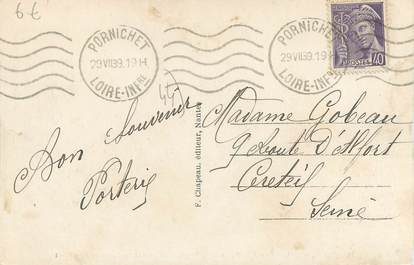 6€
PORNICHET
29 VII 39. 19 H
LOIRE-INFRE
PORNICHET
29 VII 39. 19 H
LOIRE-INFRE
POSTES 40
44
Bon Souvenir
F. Chapeau, éditeur, Nantes
Madame Gobeau
9 Boulé D'Alfort
Creteil
Seine